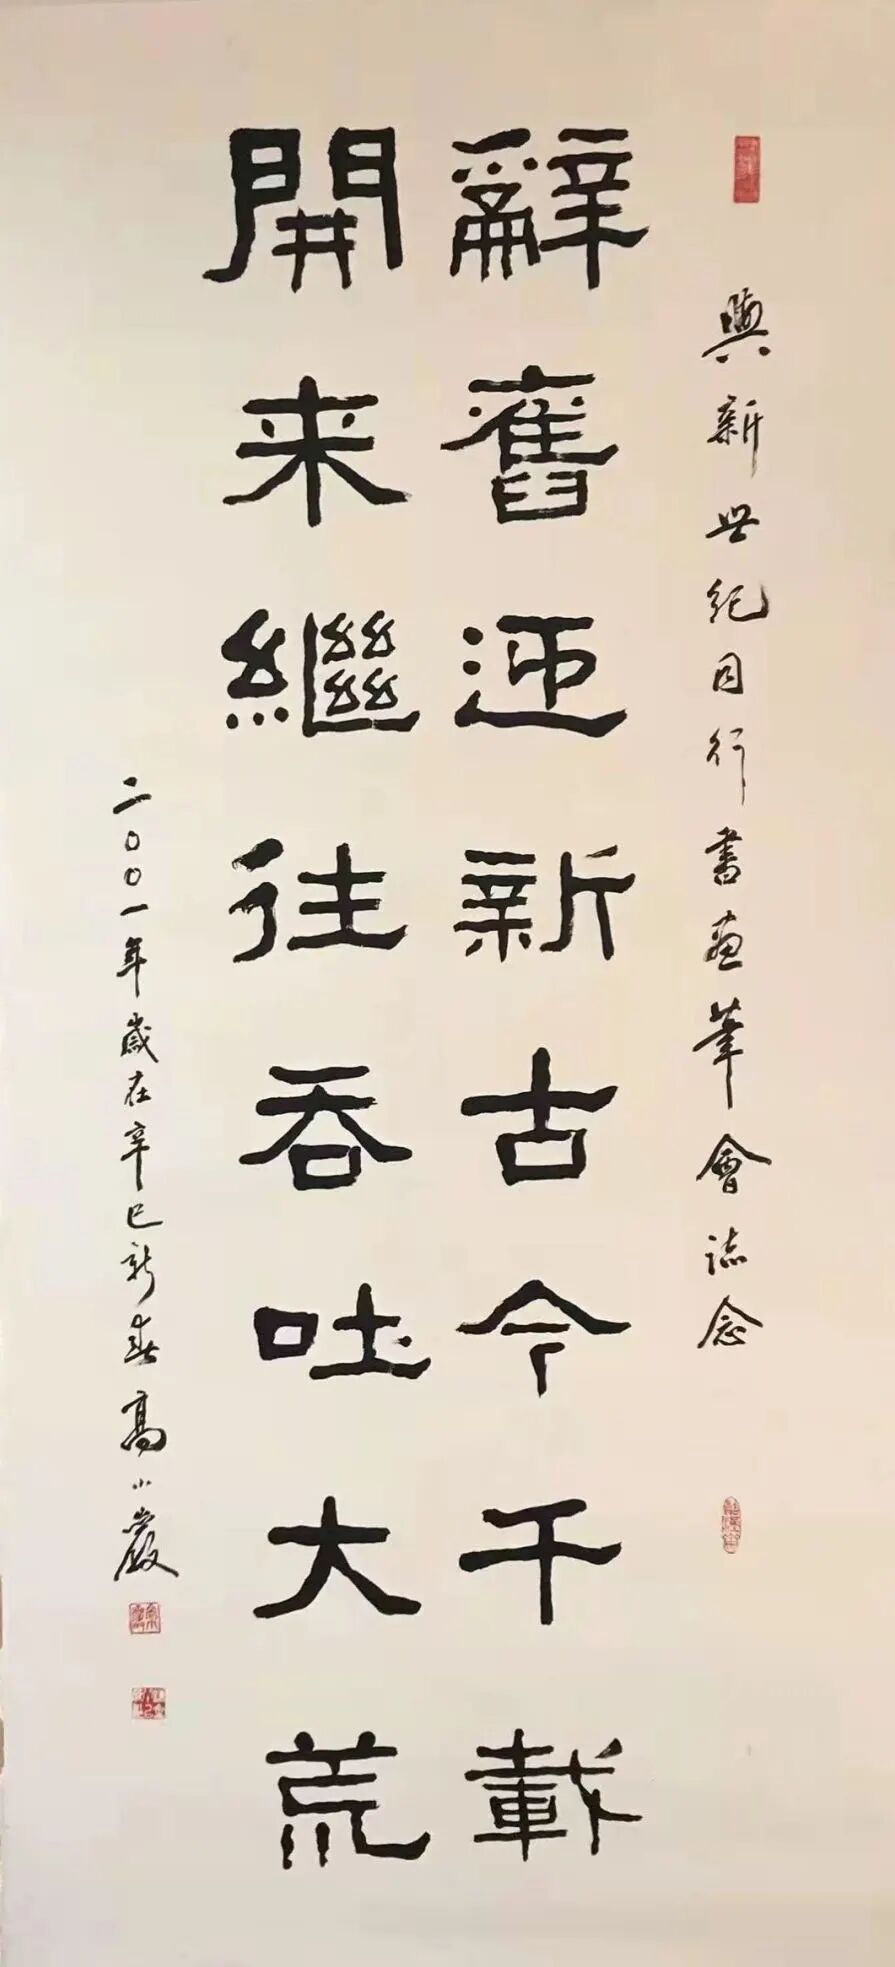 與新世纪同行書画筆會誌念
辭舊迎新古今千載
開来繼往吞吐大荒
二00一年歲在辛巳新春高小巖